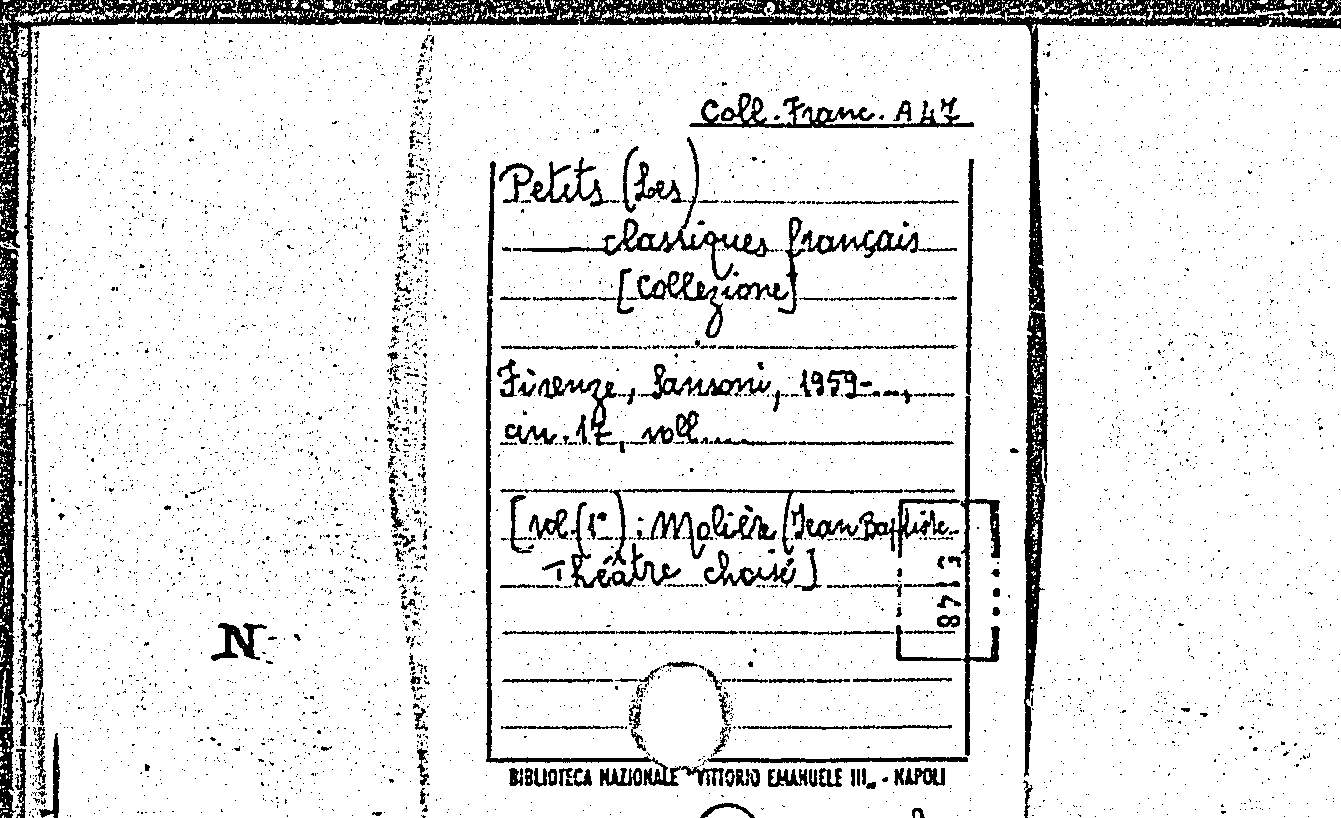 Coll. Franc. A 47
Petits (Les)
classiques français
[Collezione]
Firenze, Sansoni, 1959-...,
cm. 17, voll....
[vol. (1°) : Molière (Jean Baptiste
Théâtre choisi]
5148
N
BIBLIOTECA NAZIONALE "VITTORIO EMANUELE III„ - NAPOLI